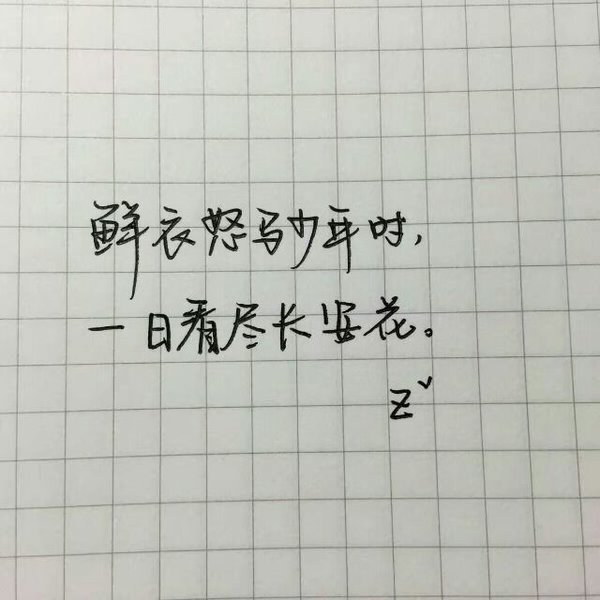 鲜衣怒马少年时,
一日看尽长安花。
Zˇ